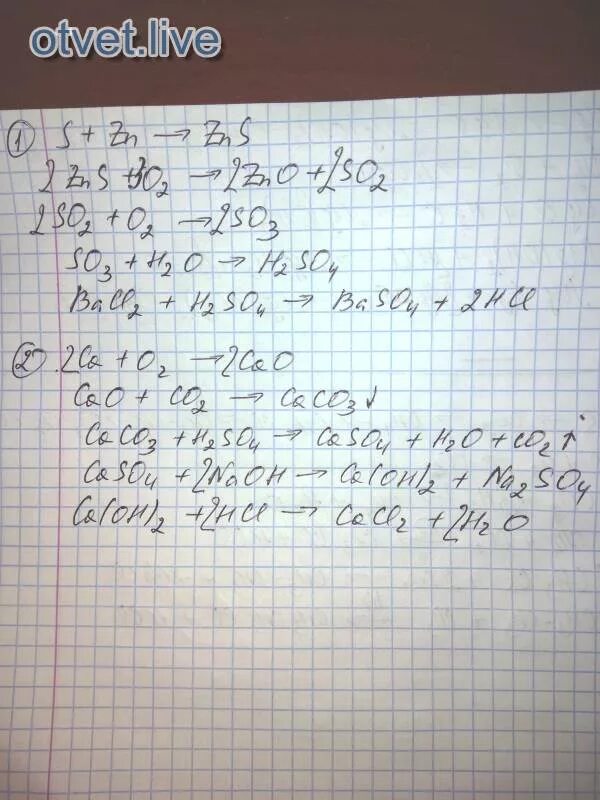 otvet.live
① S + Zn → ZnS
2ZnS + 3O₂ → 2ZnO + 2SO₂
2SO₂ + O₂ → 2SO₃
SO₃ + H₂O → H₂SO₄
BaCl₂ + H₂SO₄ → BaSO₄ + 2HCl
② 2Ca + O₂ → 2CaO
CaO + CO₂ → CaCO₃↓
CaCO₃ + H₂SO₄ → CaSO₄ + H₂O + CO₂↑
CaSO₄ + 2NaOH → Ca(OH)₂ + Na₂SO₄
Ca(OH)₂ + 2HCl → CaCl₂ + 2H₂O